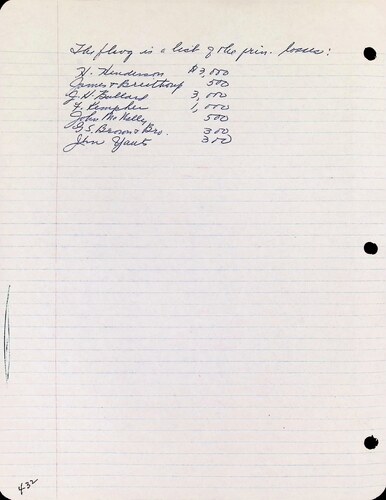 The flwg is a list of the prin. losses:
H. Henderson $3,000
James & Breathoup 500
J. H. Bullard 3,000
F. Kempher 1,000
John McKelly 500
G. S. Brown & Bro. 300
John Yauts 300
432